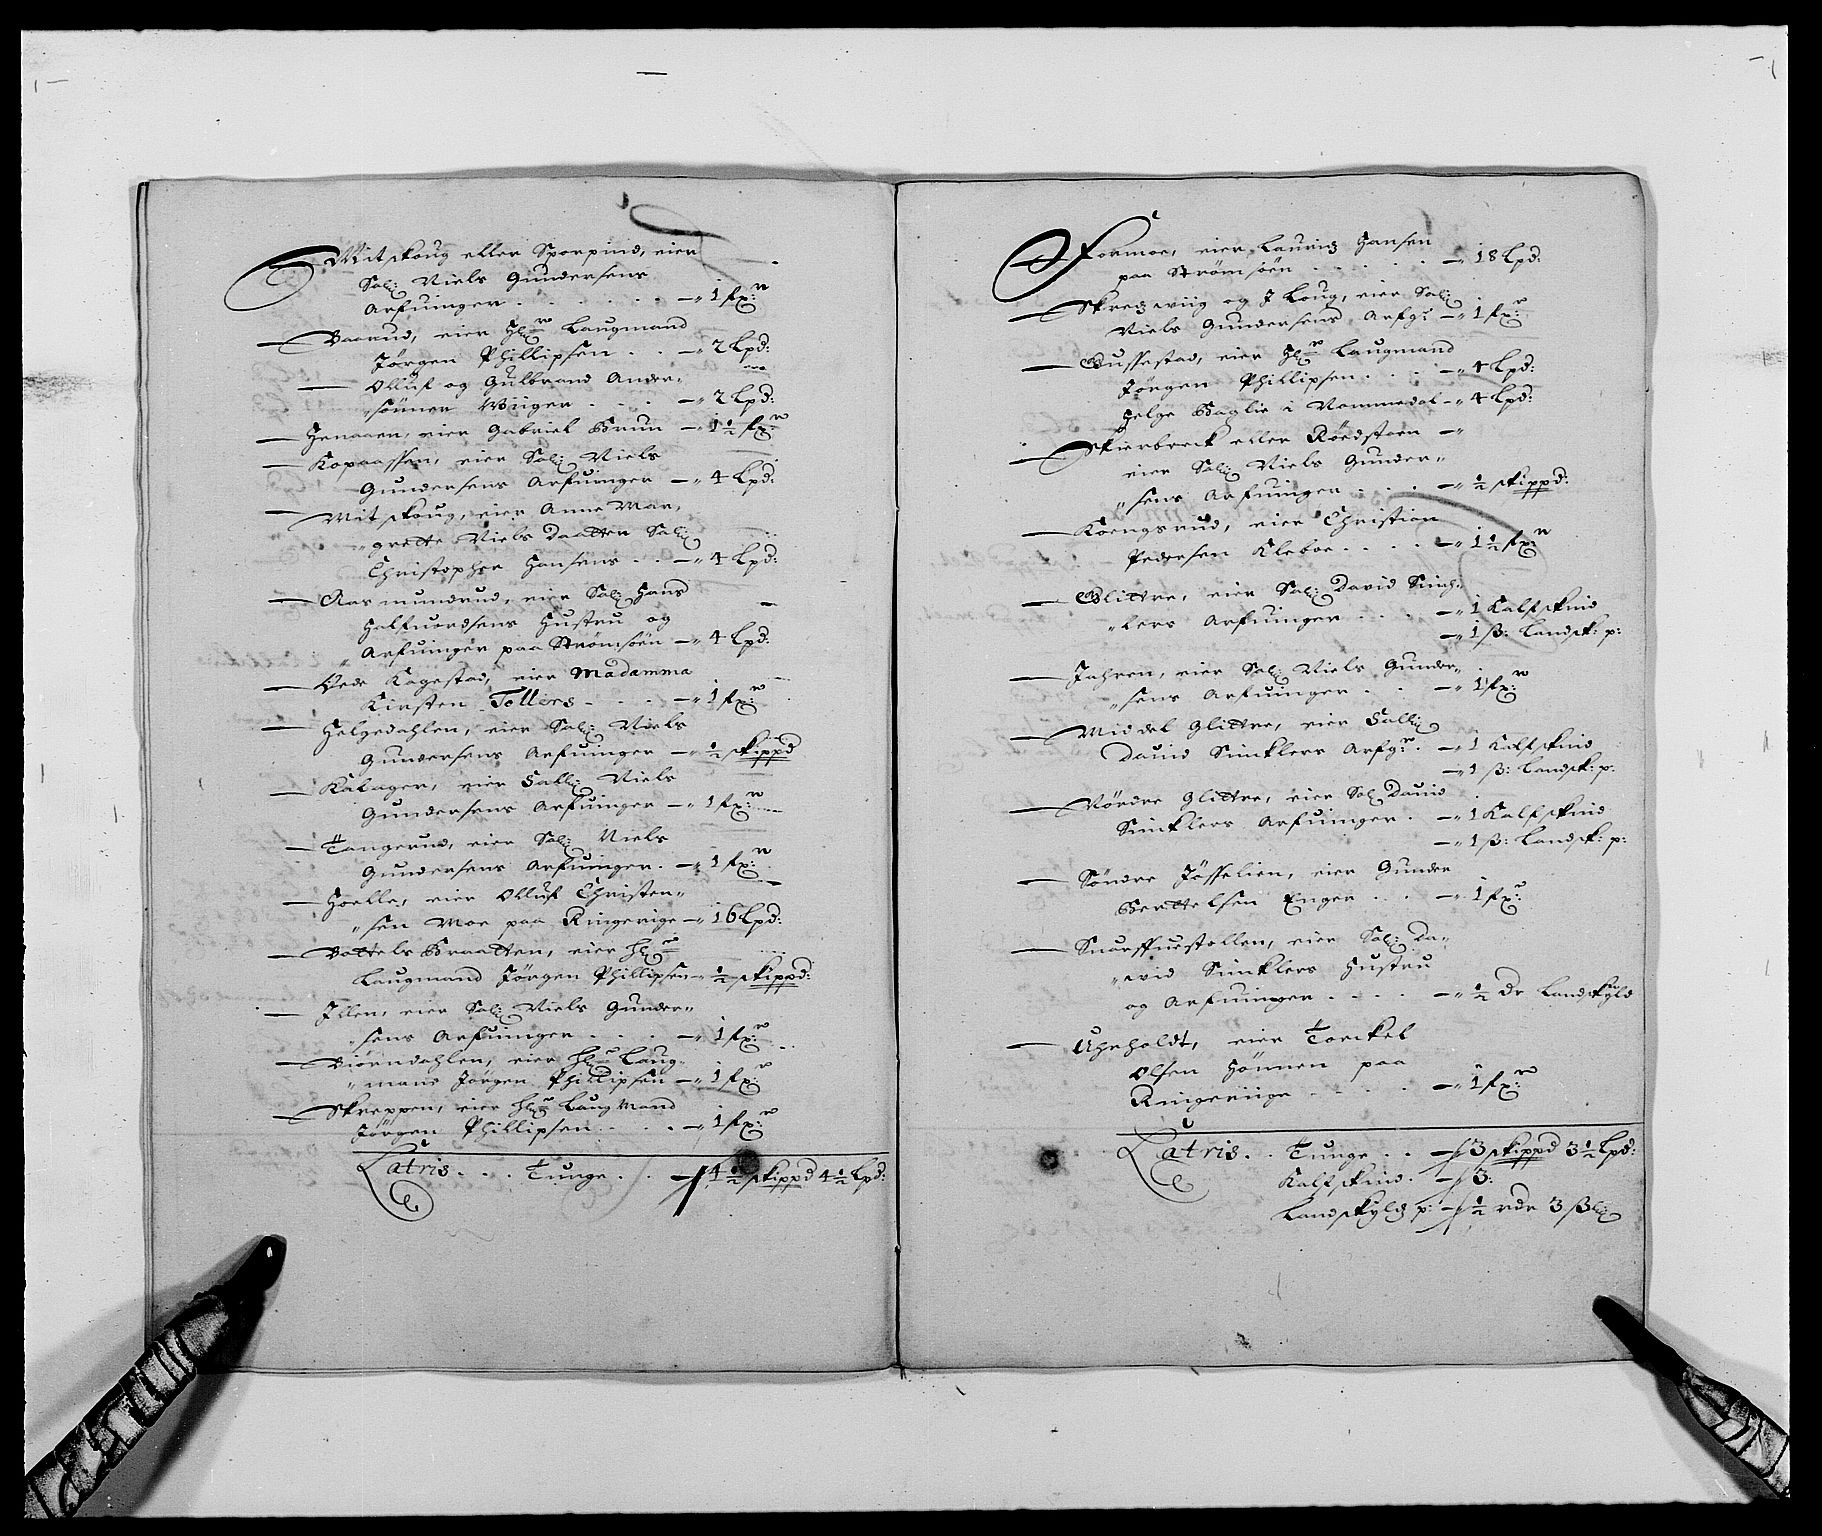 Mitskoug eller Sporpind, eier
Sal: Niels Gundersens
Arfuinger . . . . . . — 1 fxr:
Baarud, eier Hr: Laugmand
Jörgen Phillipsen . . — 2 Lpd:
Olluf og Gulbrand Ander-
sönner Wiiger . . . — 2 Lpd:
Henaaen, eier Gabriel Brun — 1½ fxr:
Kopaassen, eier Sal: Niels
Gundersens Arfuinger — 4 Lpd:
Mitskoug, eier Anne Mar-
grette Niels Daatter Sal:
Christopher Hansens . . — 4 Lpd:
Aasmundrud, eier Sal: Hans
Halfuordsens Hustru og
Arfuinger paa Strömsöen — 4 Lpd:
Kagestad, eier Madamma
Kirsten Tollers . . . — 1 fxr:
Helgedahlen, eier Sal: Niels
Gundersens Arfuinger — ½ skippd
Kalager, eier Salli: Niels
Gundersens Arfuinger — 1 fxr:
Tangerud, eier Sal: Niels
Gundersens Arfuinger . — 1 fxr:
Hoelle, eier Olluf Christen-
sen Moe paa Ringerige — 16 Lpd:
Bottels Braatten, eier Hr:
Laugmand Jörgen Phillipsen — ½ skippd:
Illen, eier Sal: Niels Gunder-
sens Arfuinger . . . — 1 fxr:
Biörndahlen, eier Hr: Laug-
mand Jörgen Phillipsen — 1 fxr:
Skreppen, eier Hr: Laugmand
Jörgen Phillipsen . . . — 1 fxr:
Latris . . . Tunge . . — 4½ skippd 4½ Lpd:
Formoe, eier Lauridz Hansen
paa Strömsöen . . . . . — 18 Lpd:
Skredzwiig og J Loug, eier Sal:
Niels Gundersens Arfgr: — 1 fxr:
Gussestad, eier Hr: Laugmand
Jörgen Phillipsen . . . — 4 Lpd:
Helge Baglie i Nommedal — 4 Lpd:
Skierbreck eller Röedstoen —
eier Sal: Niels Gunder-
sens Arfuinger . . . — ½ skippd:
Kongsrud, eier Christian
Pedersen Kleboe . . . . — 1½ fxr:
Glittre, eier Sal: David Sinch-
lers Arfuinger . . . — 1 Kalfskind
— 1 ß: Landsk: p:
Jahren, eier Sal: Niels Gunder-
sens Arfuinger . . — 1 fxr:
Middel Glittre, eier Salli:
Dauid Sinklers Arfgr: . — 1 Kalfskind
— 1 ß: Landsk: p:
Nördre Glittre, eier Sal: Dauid
Sincklers Arfuinger . — 1 Kalfskind
— 1 ß: Landsk: p:
Söndre Jösselien, eier Gunder
Berttelsen Enger . . . — 1 fxr:
Snarffuestollen, eier Sal: Da-
wid Sincklers Hustru
og Arfuinger . . . . — ½ Dr Landskyld
Uhrholdt, eier Torckel
Olsen Hönnen paa
Ringeriige . . . . — 1 fxr:
Latris . . Tunge . . — 3 skippd 3½ Lpd:
Kalfskind . — 3:
Landskyldz p: — ½ rdr 3 ßli: